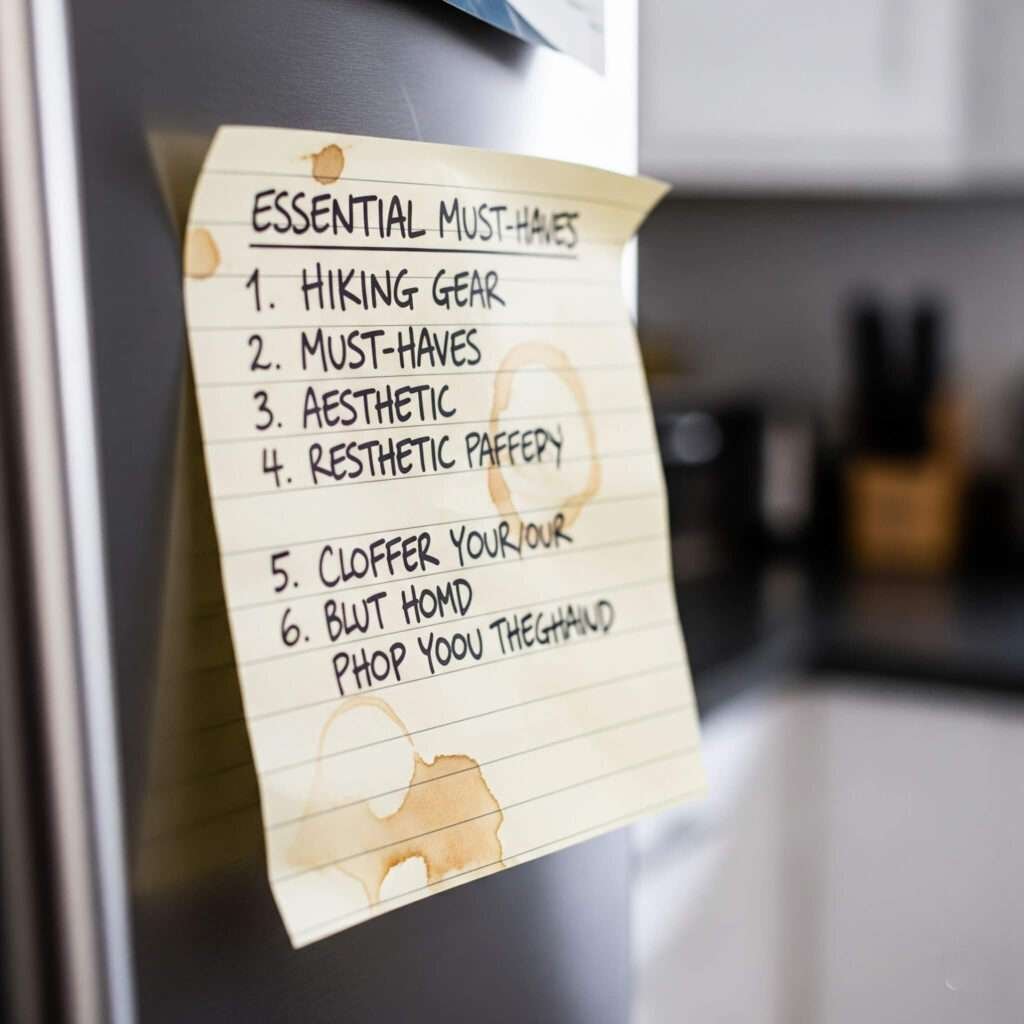 ESSENTIAL MUST-HAVES
1. HIKING GEAR
2. MUST-HAVES
3. AESTHETIC
4. RESTHETIC PAFFEPY
5. CLOFFER YOUR/OUR
6. BLUT HOMD
PHOP YOOU THEGHAND